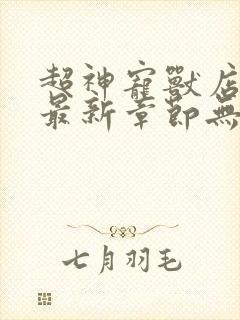 超神寵獸店
最新章節無
七月羽毛